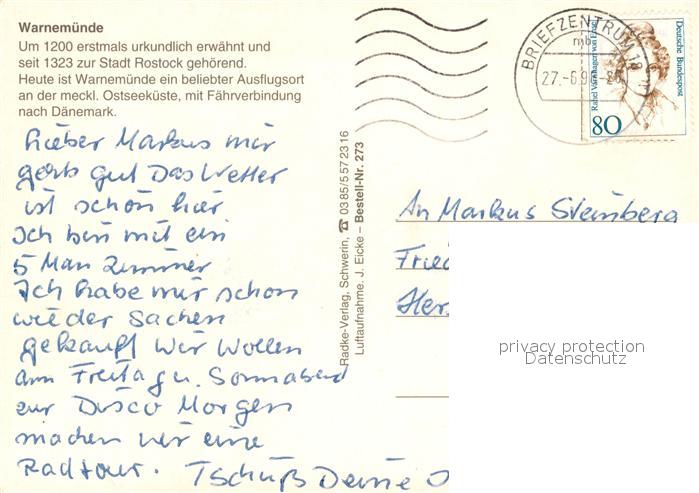 Warnemünde
Um 1200 erstmals urkundlich erwähnt und
seit 1323 zur Stadt Rostock gehörend.
Heute ist Warnemünde ein beliebter Ausflugsort
an der meckl. Ostseeküste, mit Fährverbindung
nach Dänemark.
Lieber Markus mir
gehts gut Das Wetter
ist schön hier
Ich bin mit ein
5 Man Zimmer
Ich habe mir schon
wieder Sachen
gekauft Wir Wollen
am Freitag u. Sonnabend
zur Disco Morgen
machen wir eine
Radtour. Tschüß Deine
Radke-Verlag, Schwerin, ☎ 0385/5572316
Luftaufnahme. J. Eicke – Bestell-Nr. 273
BRIEFZENTRUM 18
mb
27.-6.9
Deutsche Bundespost
Rahel Varnhagen von Ense
80
An Markus Steinberg
Fried
Her
privacy protection
Datenschutz